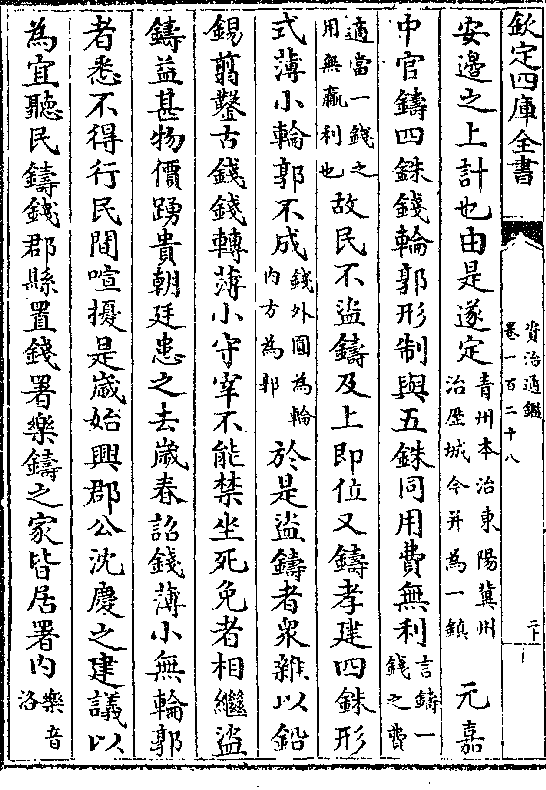 欽定四庫全書
資治通鑑
卷一百二十八
安邊之上計也由是遂定青州本治東陽冀州治歷城今并為一鎮元嘉
中官鑄四銖錢輪郭形制與五銖同用費無利言鑄一錢之費
適當一錢之用無贏利也故民不盜鑄及上即位又鑄孝建四銖形
式薄小輪郭不成錢外圓為輪内方為郭於是盜鑄者衆雜以鉛
錫翦鑿古錢錢轉薄小守宰不能禁坐死免者相繼盜
鑄益甚物價踴貴朝廷患之去嵗春詔錢薄小無輪郭
者悉不得行民間喧擾是嵗始興郡公沈慶之建議以
為宜聽民鑄錢郡縣置錢署樂鑄之家皆居署内樂音洛